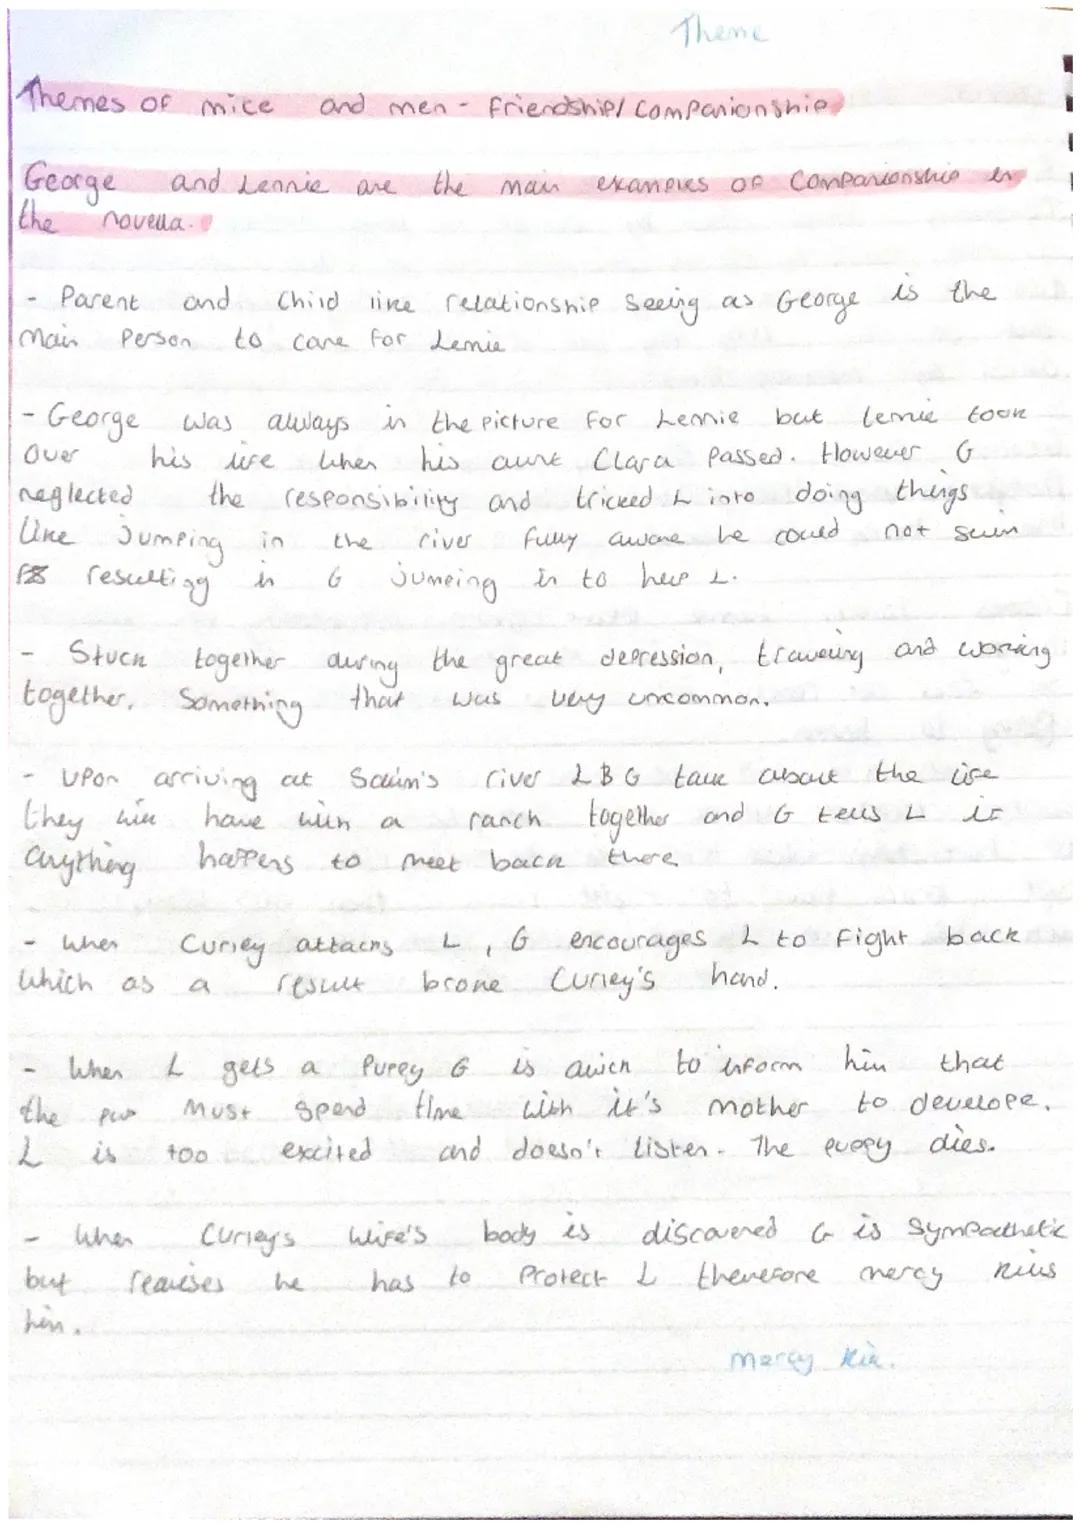 Theme
Themes of mice and men - friendship/ Companionship
George and Lennie are the main examples of Companionship in
the novella.
- Parent and Child like relationship seeing as George is the
main Person to care for Lennie
- George was always in the picture for Lennie but lennie took
over his life when his aunt Clara passed. However G
neglected the responsibility and tricked L into doing things
like Jumping in the river fully aware he could not swim
resulting in G jumping in to help L.
- Stuck together during the great depression, traveling and working
together. Something that was very uncommon.
- Upon arriving at Saum's river L B G talk about the life
they will have win a ranch together and G tells L if
anything happens to meet back there
- When Curley attacks L, G encourages L to fight back
which as a result broke Curley's hand.
- When L gets a Puppy G is quick to inform him that
the pup must spend time with it's mother to develope.
L is too excited and doesn't listen. The puppy dies.
- When Curley's wife's body is discovered G is Sympathetic
but realises he has to Protect L therefore mercy kills
him.
mercy kill.